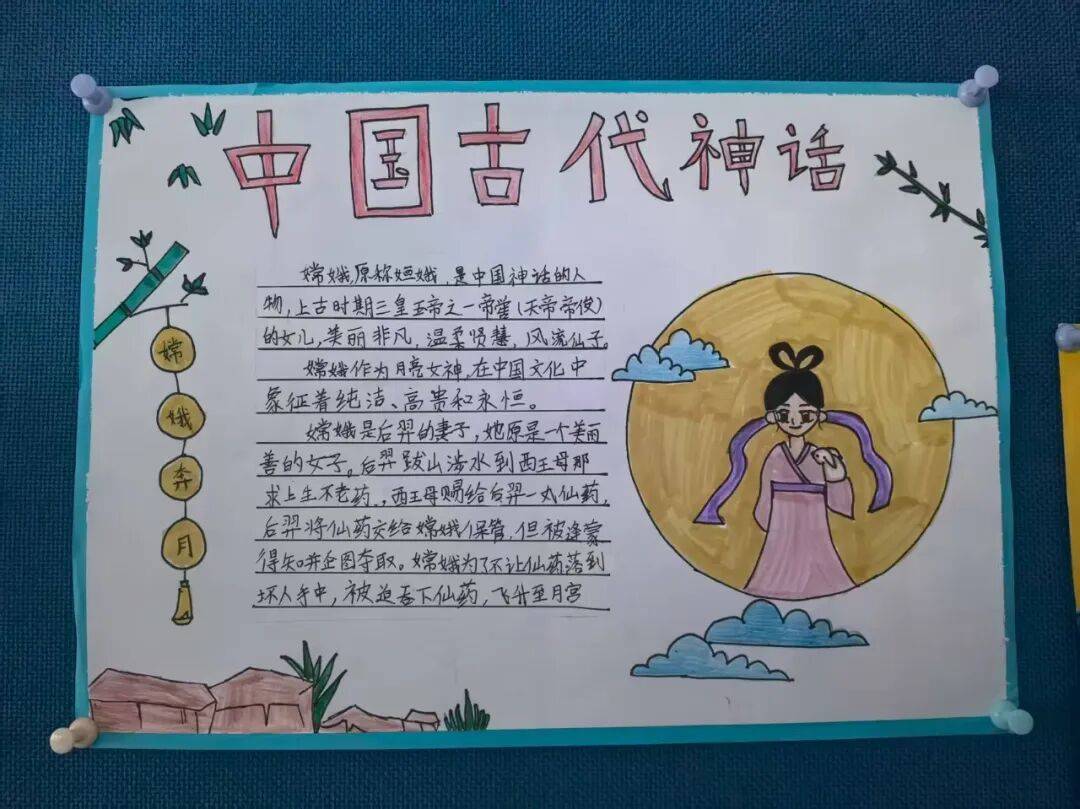 中国古代神话
嫦娥奔月
嫦娥,原称姮娥,是中国神话的人
物,上古时期三皇五帝之一帝喾(天帝帝俊)
的女儿,美丽非凡,温柔贤慧,风流仙子。
嫦娥作为月亮女神,在中国文化中
象征着纯洁、高贵和永恒。
嫦娥是后羿的妻子,她原是一个美丽
善的女子。后羿跋山涉水到西王母那
求上生不老药,西王母赐给后羿一丸仙药,
后羿将仙药交给嫦娥保管,但被逢蒙
得知并企图夺取。嫦娥为了不让仙药落到
坏人手中,被迫吞下仙药,飞升至月宫